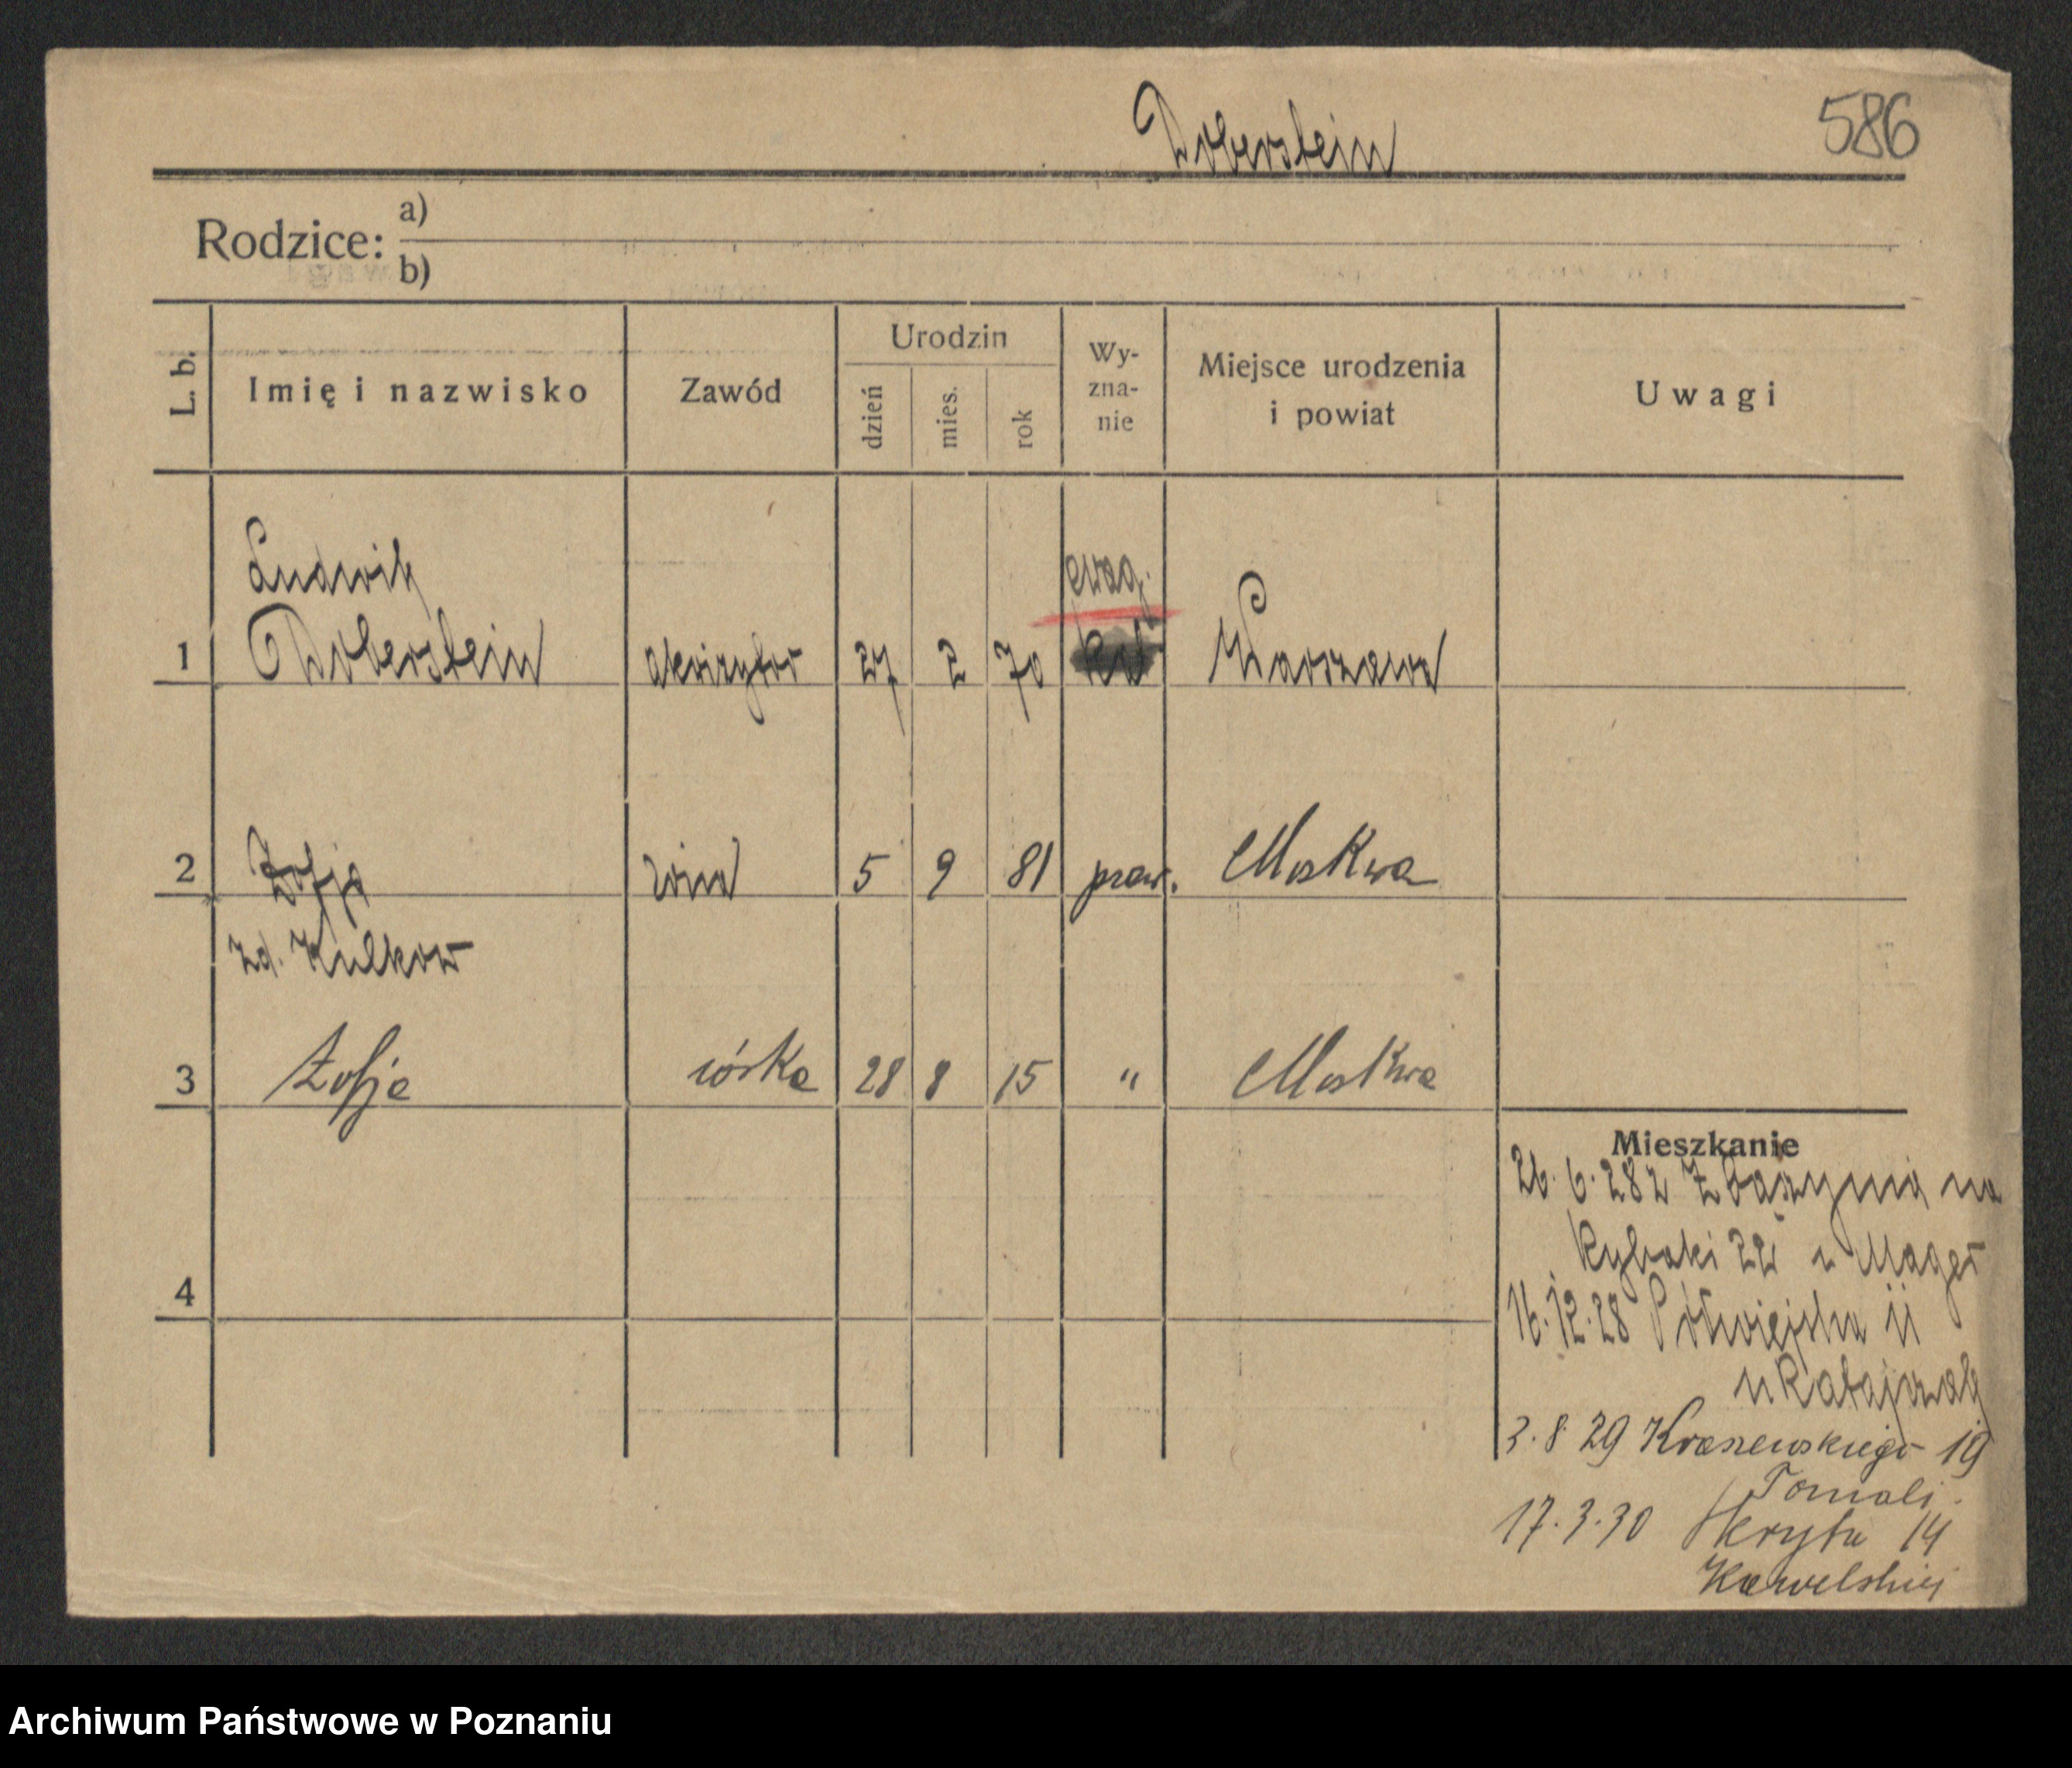 586
Doberstein
Rodzice: a)
b)
L. b.
Imię i nazwisko
Zawód
Urodzin
dzień
mies.
rok
Wy-
zna-
nie
Miejsce urodzenia
i powiat
Uwagi
Ludwik
ewag.
1 Doberstein akwizytor 27 2 70 kat Warszawa
2 Zofja żona 5 9 81 praw. Moskwa
zd. Kulkow
3 Zofja córka 28 8 15 " Moskwa
Mieszkanie
26. 6. 28 z Zbąszynia na
Rybaki 22 u Mager
16.12.28 Półwiejska 11
u Ratajczak
3. 8. 29 Kraszewskiego 19
17. 3. 30 Skryta 14
4
Archiwum Państwowe w Poznaniu